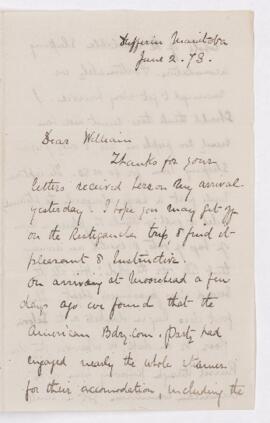 Dufferin Manitoba
June 2. 73.
Dear William
Thanks for your
letters received here on my arrival
yesterday. I hope you may get off
on the Restigouche trip, & find it
pleasant & instructive.
On arriving at Moorehead a few
days ago we found that the
American Bdry. Com. Party had
engaged nearly the whole steamer
for their accomodation, including the